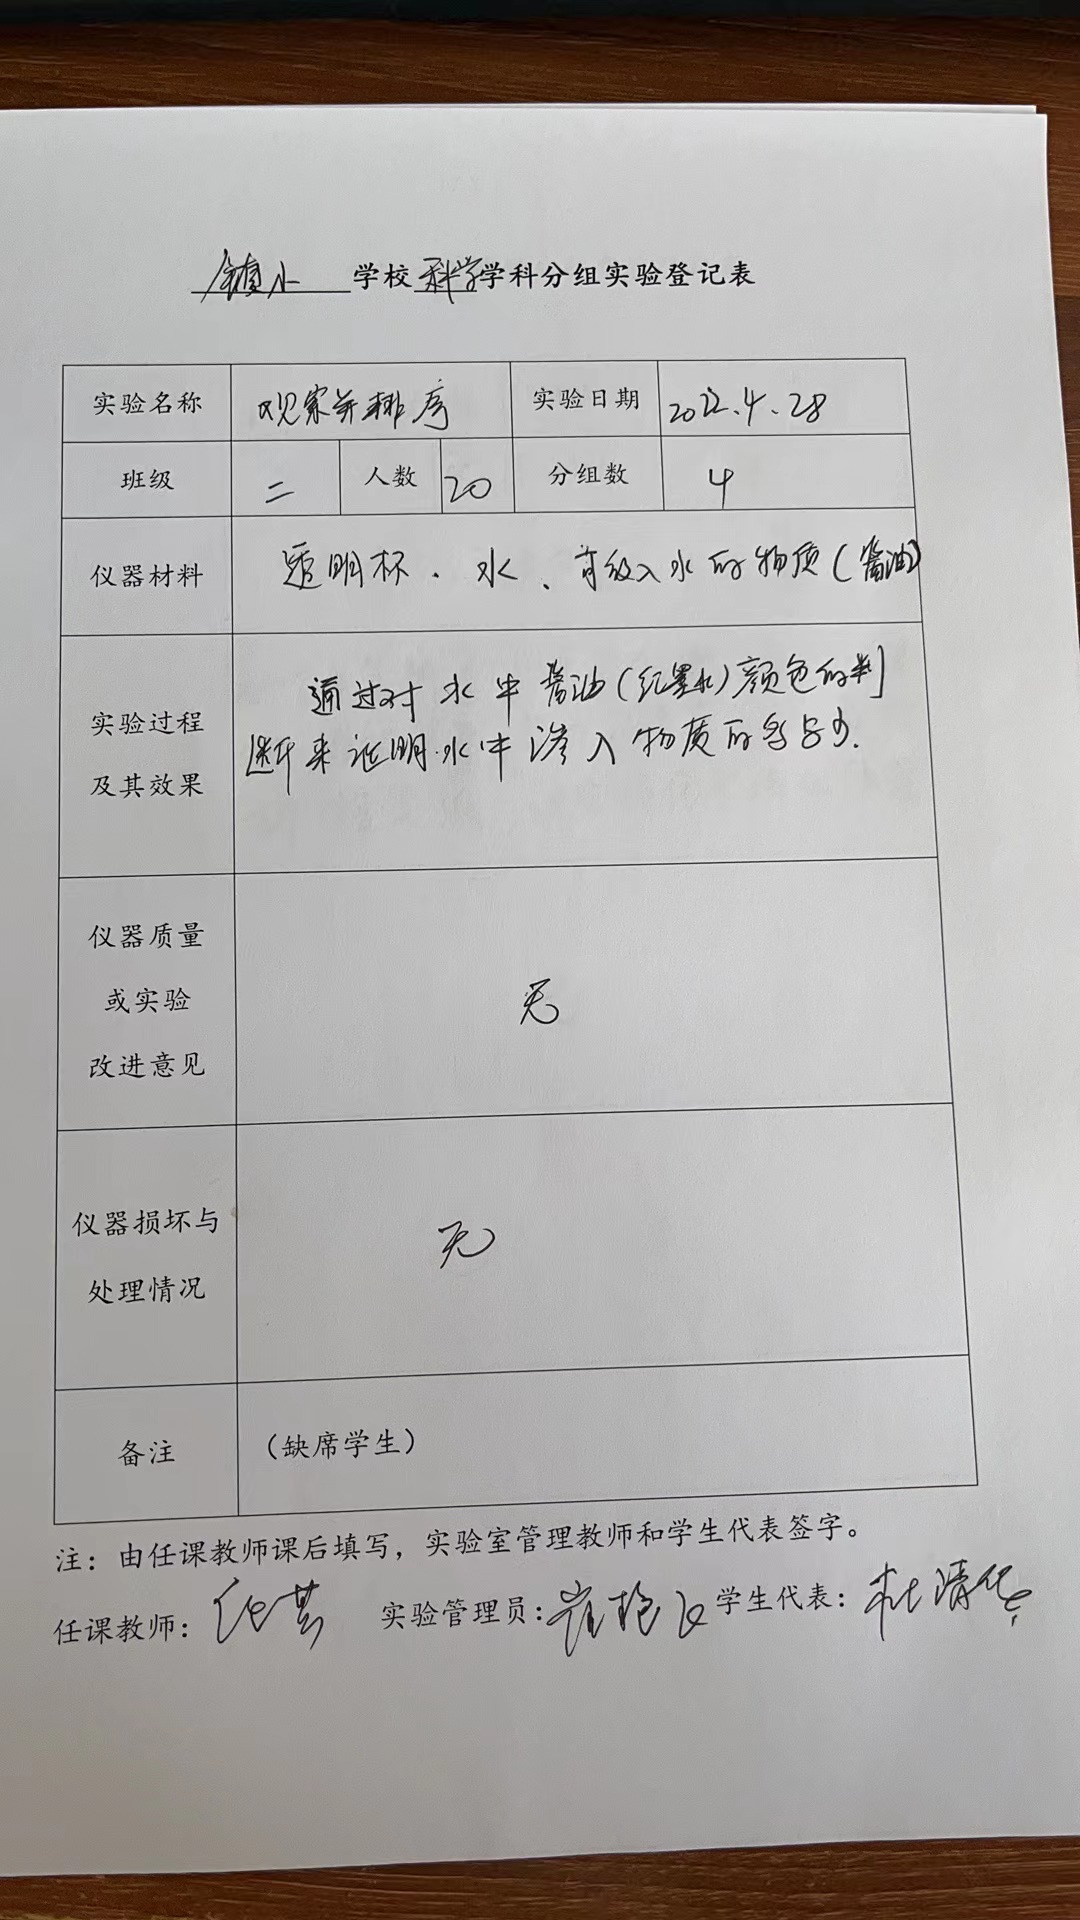 镇小 学校 科学 学科分组实验登记表
实验名称 观察并排序 实验日期 2022.4.28
班级 二 人数 20 分组数 4
仪器材料 透明杯、水、可放入水的物质(酱油)
实验过程
及其效果
通过对水中酱油(红墨水)颜色的判
断来证明水中渗入物质的多与少.
仪器质量
或实验
改进意见
无
仪器损坏与
处理情况
无
备注 (缺席学生)
注:由任课教师课后填写,实验室管理教师和学生代表签字。
任课教师: 实验管理员: 学生代表: